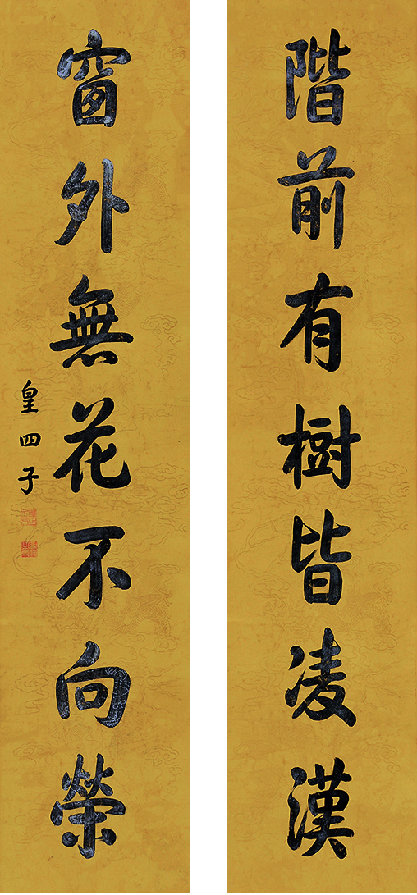 階前有樹皆凌漢
窗外無花不向榮
皇四子